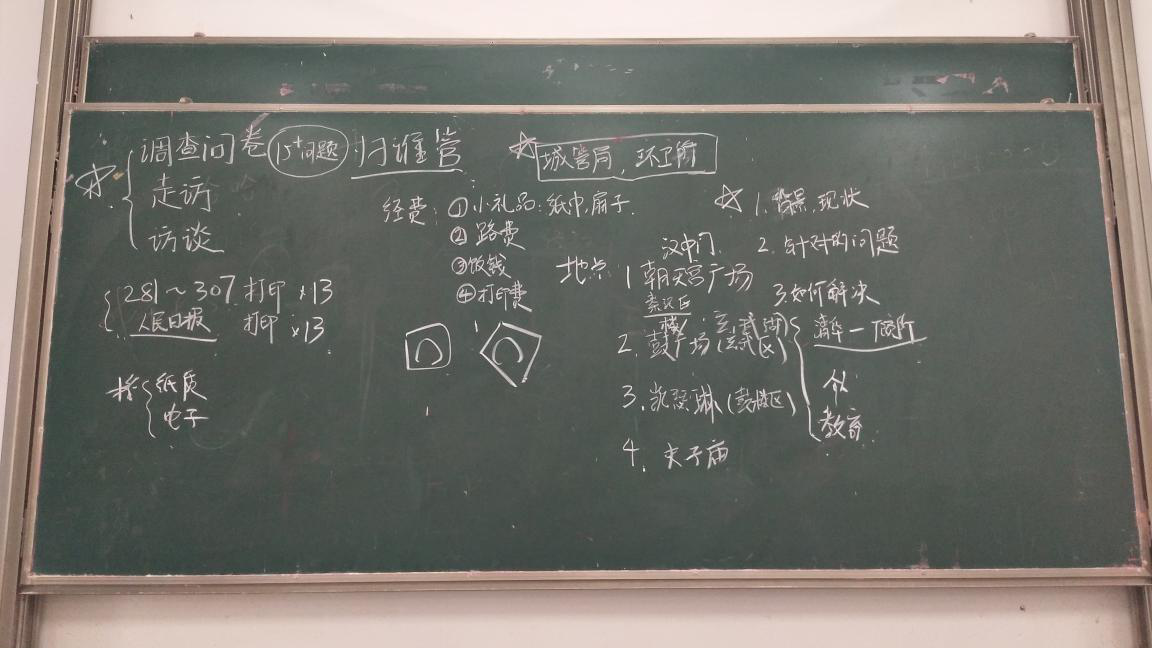 调查问卷 15+问题 归谁管
走访
访谈
城管局，环卫所
281～307 打印 ×13
人民日报 打印 ×13
纸质
电子
经费：①小礼品：纸巾，扇子
②路费
③饭钱
④打印费
1. 背景，现状
2. 针对的问题
3. 如何解决
汉中门
地点 1 朝天宫广场
秦淮区
玄武湖
2. 鼓广场（玄武区）
3. （鼓楼区）
4. 夫子庙
教育